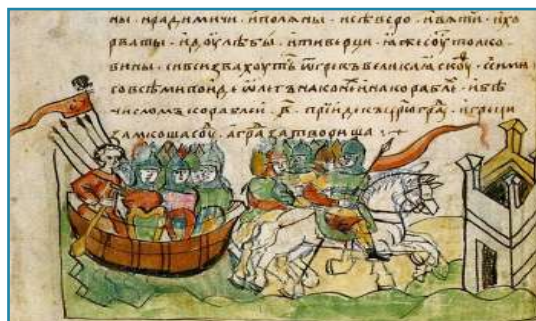 ны · ирадимичи · иполѧны · исѣверо · ивѧти · ихо
рваты · идоулѣбы · итиверци · ꙗжесоутолко
вины · сивсизвахоуть ѿгрекъвеликаѧскоуⷴ · ссими
совсѣмипоиде ѿлегънаконеинакораблеⷯ · ибѣ
числомъкораблеи · в҃ · прїидекъцрюграⷣ · игреци
замкошасоуⷣ · аграⷣзатвориша